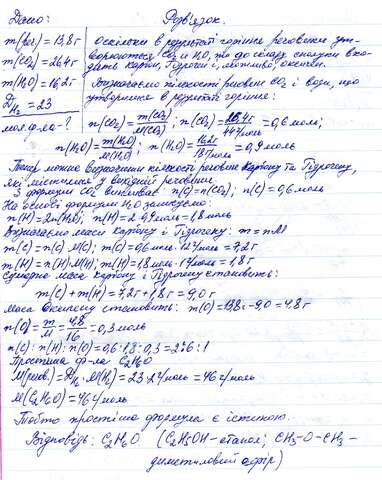 Дано: Розв'язок.
m(реч)=13,8г Оскільки в результаті горіння речовини утво-
m(CO₂)=26,4г рюються CO₂ и H₂O, то до складу сполуки вхо-
m(H₂O)=16,2г дить Карбон, Гідроген і, можливо, оксиген.
D H₂ = 23 Визначаємо кількості речовин CO₂ і води, що
утворилися в результаті горіння:
мол.ф-ла-? n(CO₂)=m(CO₂)/M(CO₂); n(CO₂)=26,4г/44г/моль=0,6 моль;
n(H₂O)=m(H₂O)/M(H₂O); n(H₂O)=16,2г/18г/моль=0,9моль
Тепер можна визначити кількості речовин Карбону та Гідрогену,
які містилися у вихідній речовині.
З формули CO₂ випливає: n(C)=n(CO₂); n(C)=0,6 моль
На основі формули H₂O записуємо:
n(H)=2n(H₂O); n(H)=2·0,9моль=1,8 моль
Визначаємо маси Карбону і Гідрогену: m=nM
m(C)=n(C)·M(C); m(C)=0,6моль·12г/моль=7,2г
m(H)=n(H)·M(H); m(H)=1,8моль·1г/моль=1,8г
Сумарна маса Карбону і Гідрогену становить:
m(C)+m(H)=7,2г+1,8г=9,0г
Маса Оксигену становить: m(O)=13,8г-9,0=4,8г
n(O)=m/M=4,8/16=0,3 моль
n(C):n(H):n(O)=0,6:1,8:0,3=2:6:1
Простіша ф-ла C₂H₆O
M(речов.)=D H₂·M(H₂)=23·2г/моль=46г/моль
M(C₂H₆O)=46г/моль
Тобто простіша формула є істиною.
Відповідь: C₂H₆O (C₂H₅OH-етанол; CH₃-O-CH₃-
диметиловий ефір)